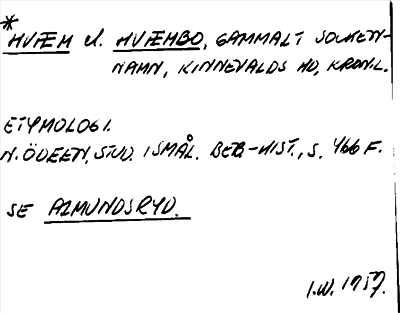 *HVÆM el. HVÆMBO, GAMMALT SOCKEN-
NAMN, KINNEVALDS HD, KRON.L.
ETYMOLOGI.
N. ÖDEEN, STUD. I SMÅL. BEB-HIST., S. 466 F.
SE ALMUNDSRYD.
I.W. 1957.